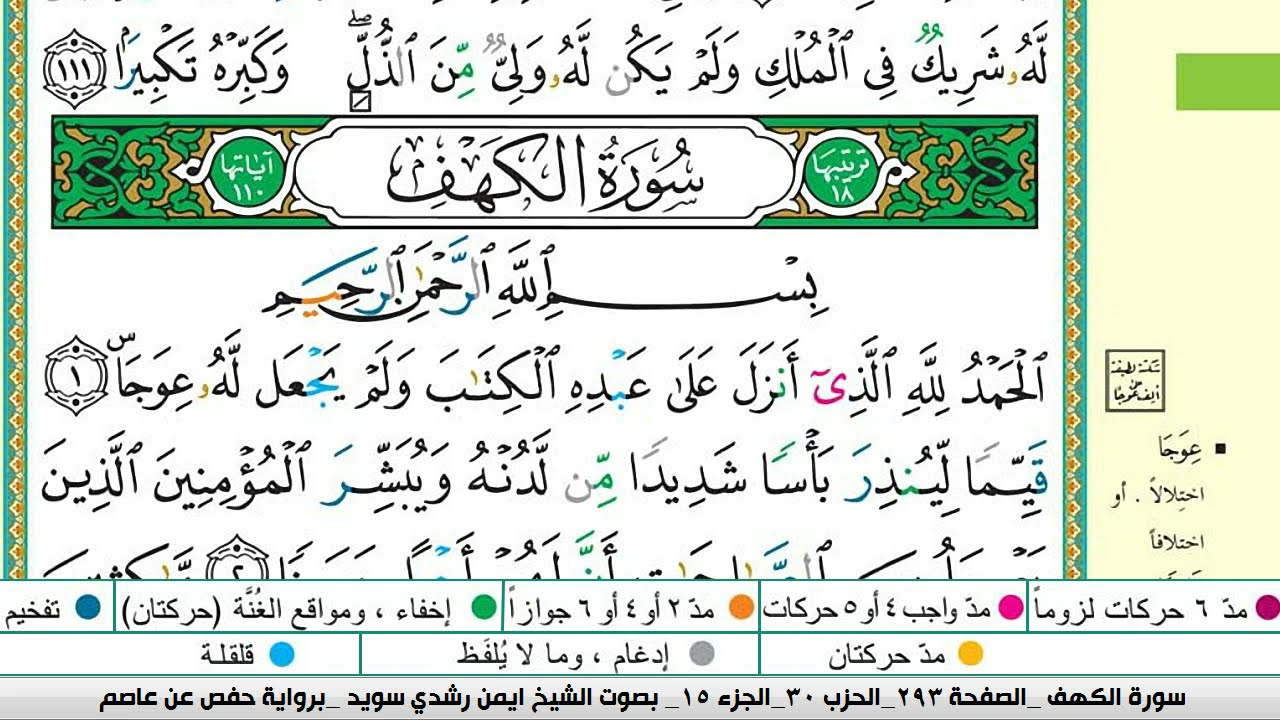 لَّهُۥ شَرِيكٌ فِى ٱلْمُلْكِ وَلَمْ يَكُن لَّهُۥ وَلِىٌّ مِّنَ ٱلذُّلِّ ۖ وَكَبِّرْهُ تَكْبِيرًۢا ١١١
ترتيبها ١٨
سُورَةُ الكَهْفِ
آياتها ١١٠
بِسْمِ ٱللَّهِ ٱلرَّحْمَٰنِ ٱلرَّحِيمِ
ٱلْحَمْدُ لِلَّهِ ٱلَّذِىٓ أَنزَلَ عَلَىٰ عَبْدِهِ ٱلْكِتَٰبَ وَلَمْ يَجْعَل لَّهُۥ عِوَجَاۜ ١
قَيِّمًا لِّيُنذِرَ بَأْسًا شَدِيدًا مِّن لَّدُنْهُ وَيُبَشِّرَ ٱلْمُؤْمِنِينَ ٱلَّذِينَ
سكتة لطيفة
على
ألف عوجا
▪ عِوَجَا
اختِلالاً . أو
اختلافاً
مدّ ٦ حركات لزوماً
مدّ واجب ٤ أو ٥ حركات
مدّ ٢ أو ٤ أو ٦ جوازاً
إخفاء ، ومواقع الغُنَّة (حركتان)
تفخيم
مدّ حركتان
إدغام ، وما لا يُلفَظ
قلقلة
سورة الكهف _الصفحة ٢٩٣_الحزب ٣٠_الجزء ١٥_ بصوت الشيخ ايمن رشدي سويد _برواية حفص عن عاصم